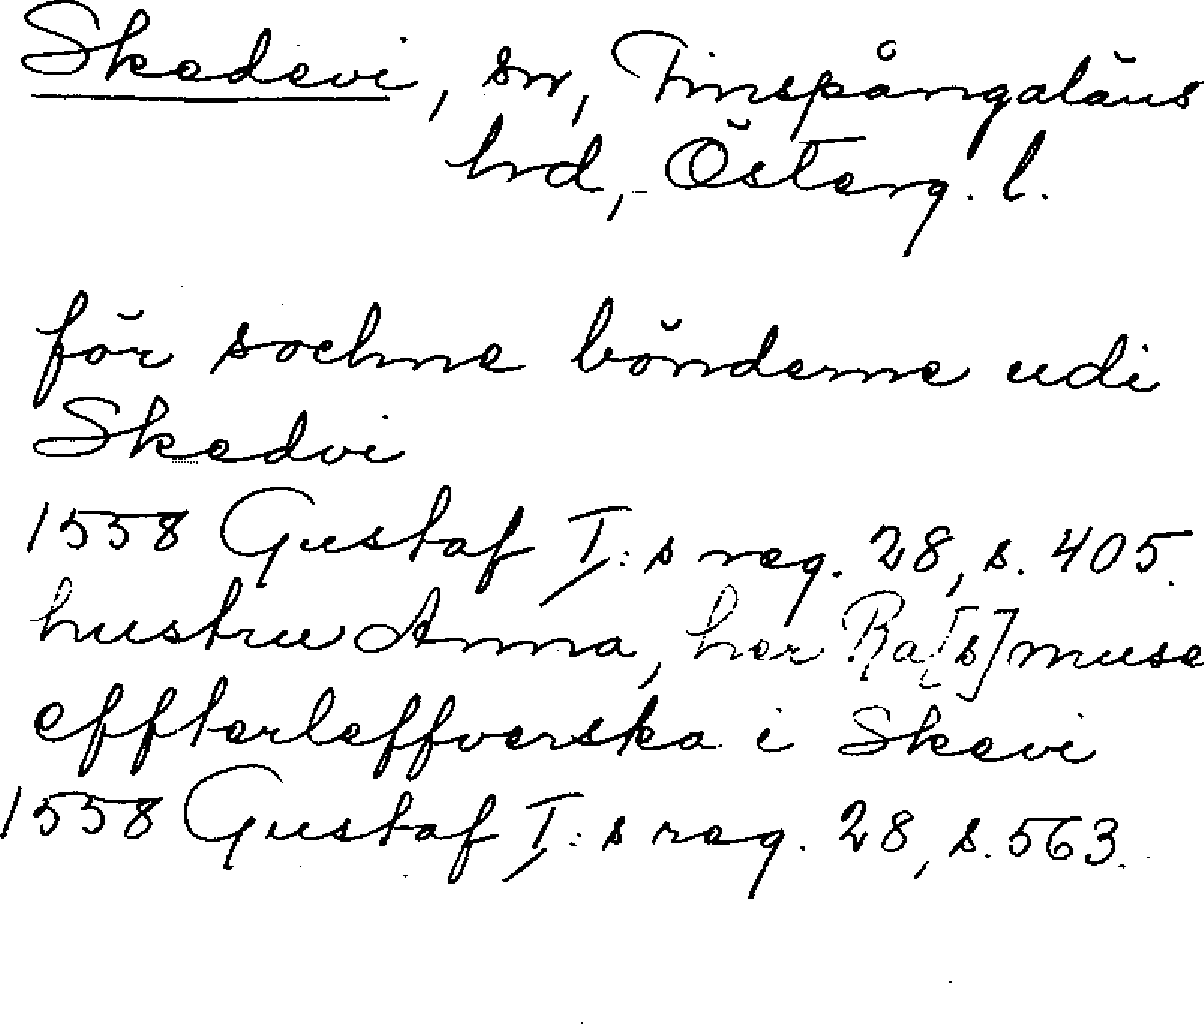 Skedevi, sn, Finspångaläns
hd, Österg. l.
för sochne bönderne udi
Skedvi
1558 Gustaf I:s reg. 28, s. 405.
hustru Anna, her Ra[s]muse
effterleffverska i Skevi
1558 Gustaf I:s reg. 28, s. 563.